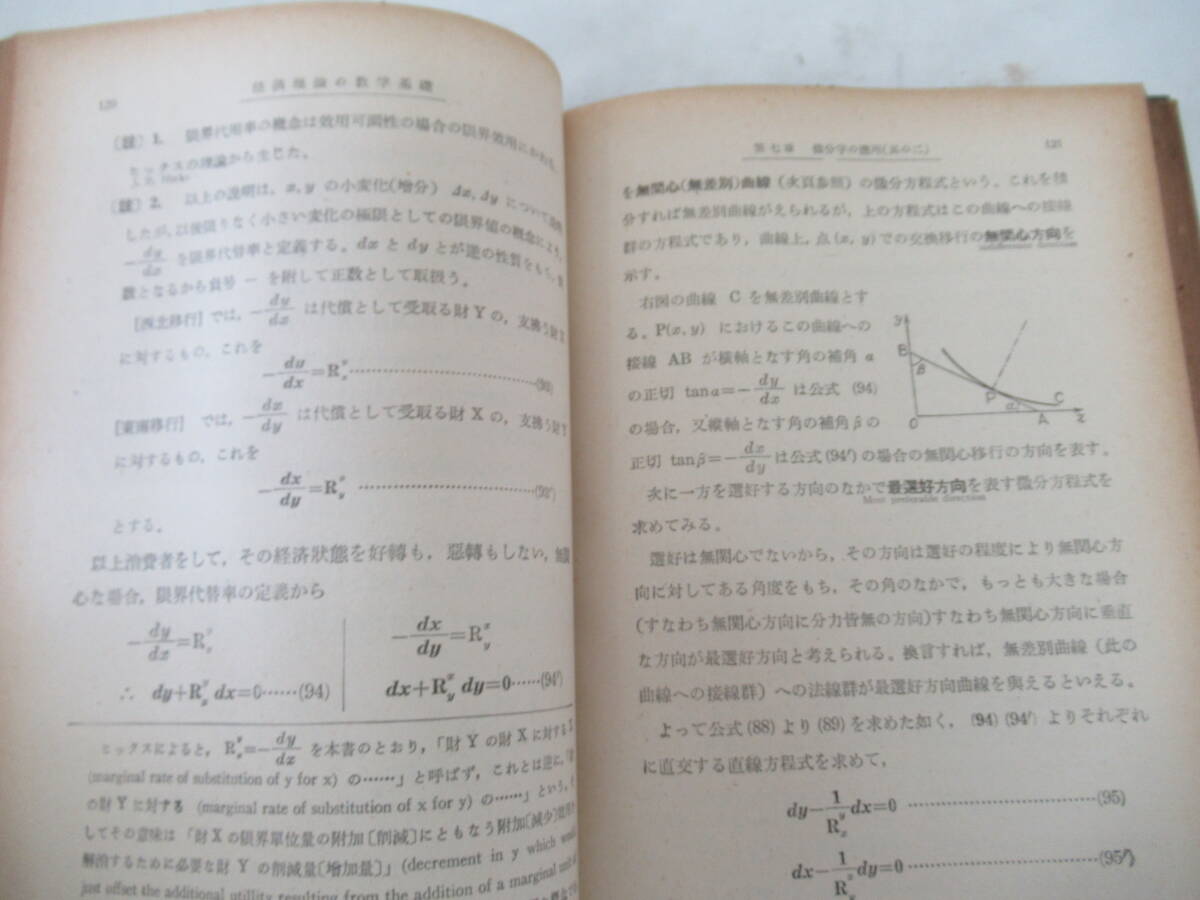 120
経済理論の数学基礎
〔註〕1. 限界代用率の概念は效用可測性の場合の限界效用にかわる,
ヒックスの理論から生じた。
J.R. Hicks
〔註〕2. 以上の説明は, x, y の小変化(増分) dx, dy について
したが, 以後限りなく小さい変化の極限としての限界値の概念により,
-dy/dx を限界代替率と定義する。dx と dy とが逆の性質をもち,
数となるから負号 — を附して正数として取扱う。
[西北移行]では, -dy/dx は代償として受取る財 Y の, 支拂う財 X
に対するもの, これを
-dy/dx=R^y_x……(93)
[東南移行] では, -dx/dy は代償として受取る財 X の, 支拂う財 Y
に対するもの, これを
-dx/dy=R^x_y ……(93')
とする。
以上消費者をして, その経済狀態を好轉も, 惡轉もしない, 無関
心な場合, 限界代替率の定義から
-dy/dx=R^y_x
-dx/dy=R^x_y
∴ dy+R^y_x dx=0……(94)
dx+R^x_y dy=0……(94')
ヒックスによると, R^y_x=-dy/dx を本書のとおり,「財 Y の財 X に対する
(marginal rate of substitution of y for x) の……」と呼ばず, これとは逆に,「財 X
の財 Y に対する (marginal rate of substitution of x for y) の……」という。
してその意味は「財 X の限界單位量の附加〔削減〕にともなう附加〔減少〕效用を
解消するために必要な財 Y の削減量〔増加量〕」(decrement in y which would
just offset the additional utility resulting from the addition of a marginal unit of
第七章 微分学の應用(其の二)
121
を無関心(無差別)曲線 (次頁参照) の微分方程式という。これを積
分すれば無差別曲線がえられるが, 上の方程式はこの曲線への接線
群の方程式であり, 曲線上, 点(x, y)での交換移行の無関心方向を
示す。
右図の曲線 C を無差別曲線とす
る。P(x, y) におけるこの曲線への
接線 AB が横軸となす角の補角 α
の正切 tanα=-dy/dx は公式 (94)
の場合, 又縦軸となす角の補角βの
正切 tanβ=-dx/dy は公式(94')の場合の無関心移行の方向を表す。
y
B
β
P
α
C
O
A
x
次に一方を選好する方向のなかで最選好方向を表す微分方程式を
Most preferable direction
求めてみる。
選好は無関心でないから, その方向は選好の程度により無関心方
向に対してある角度をもち, その角のなかで, もっとも大きな場合
(すなわち無関心方向に分力皆無の方向)すなわち無関心方向に垂直
な方向が最選好方向と考えられる。換言すれば, 無差別曲線 (此の
曲線への接線群) への法線群が最選好方向曲線を與えるといえる。
よって公式(88)より(89)を求めた如く, (94) (94') よりそれぞれ
に直交する直線方程式を求めて,
dy-1/R^y_x dx=0 ……(95)
dx-1/R^x_y dy=0 ……(95')